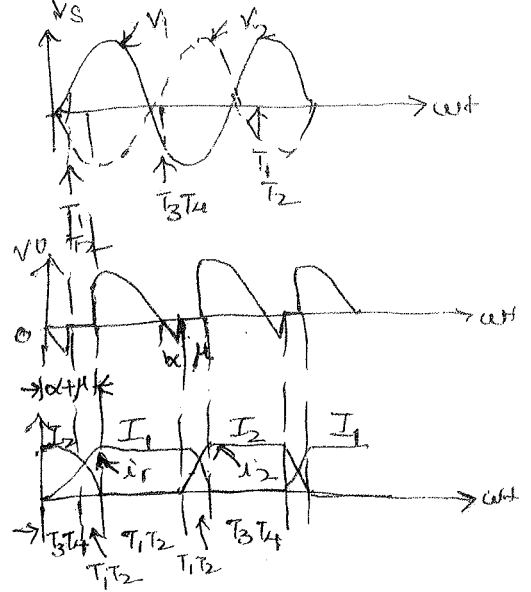 VS V1 V2
ωt
T1 T2 T3T4 T1 T2
V0
0 α μ ωt
α+μ
I2 I1 I2 I1
i1 i2
ωt
T3T4 T1T2 T3T4
T1T2 T1T2